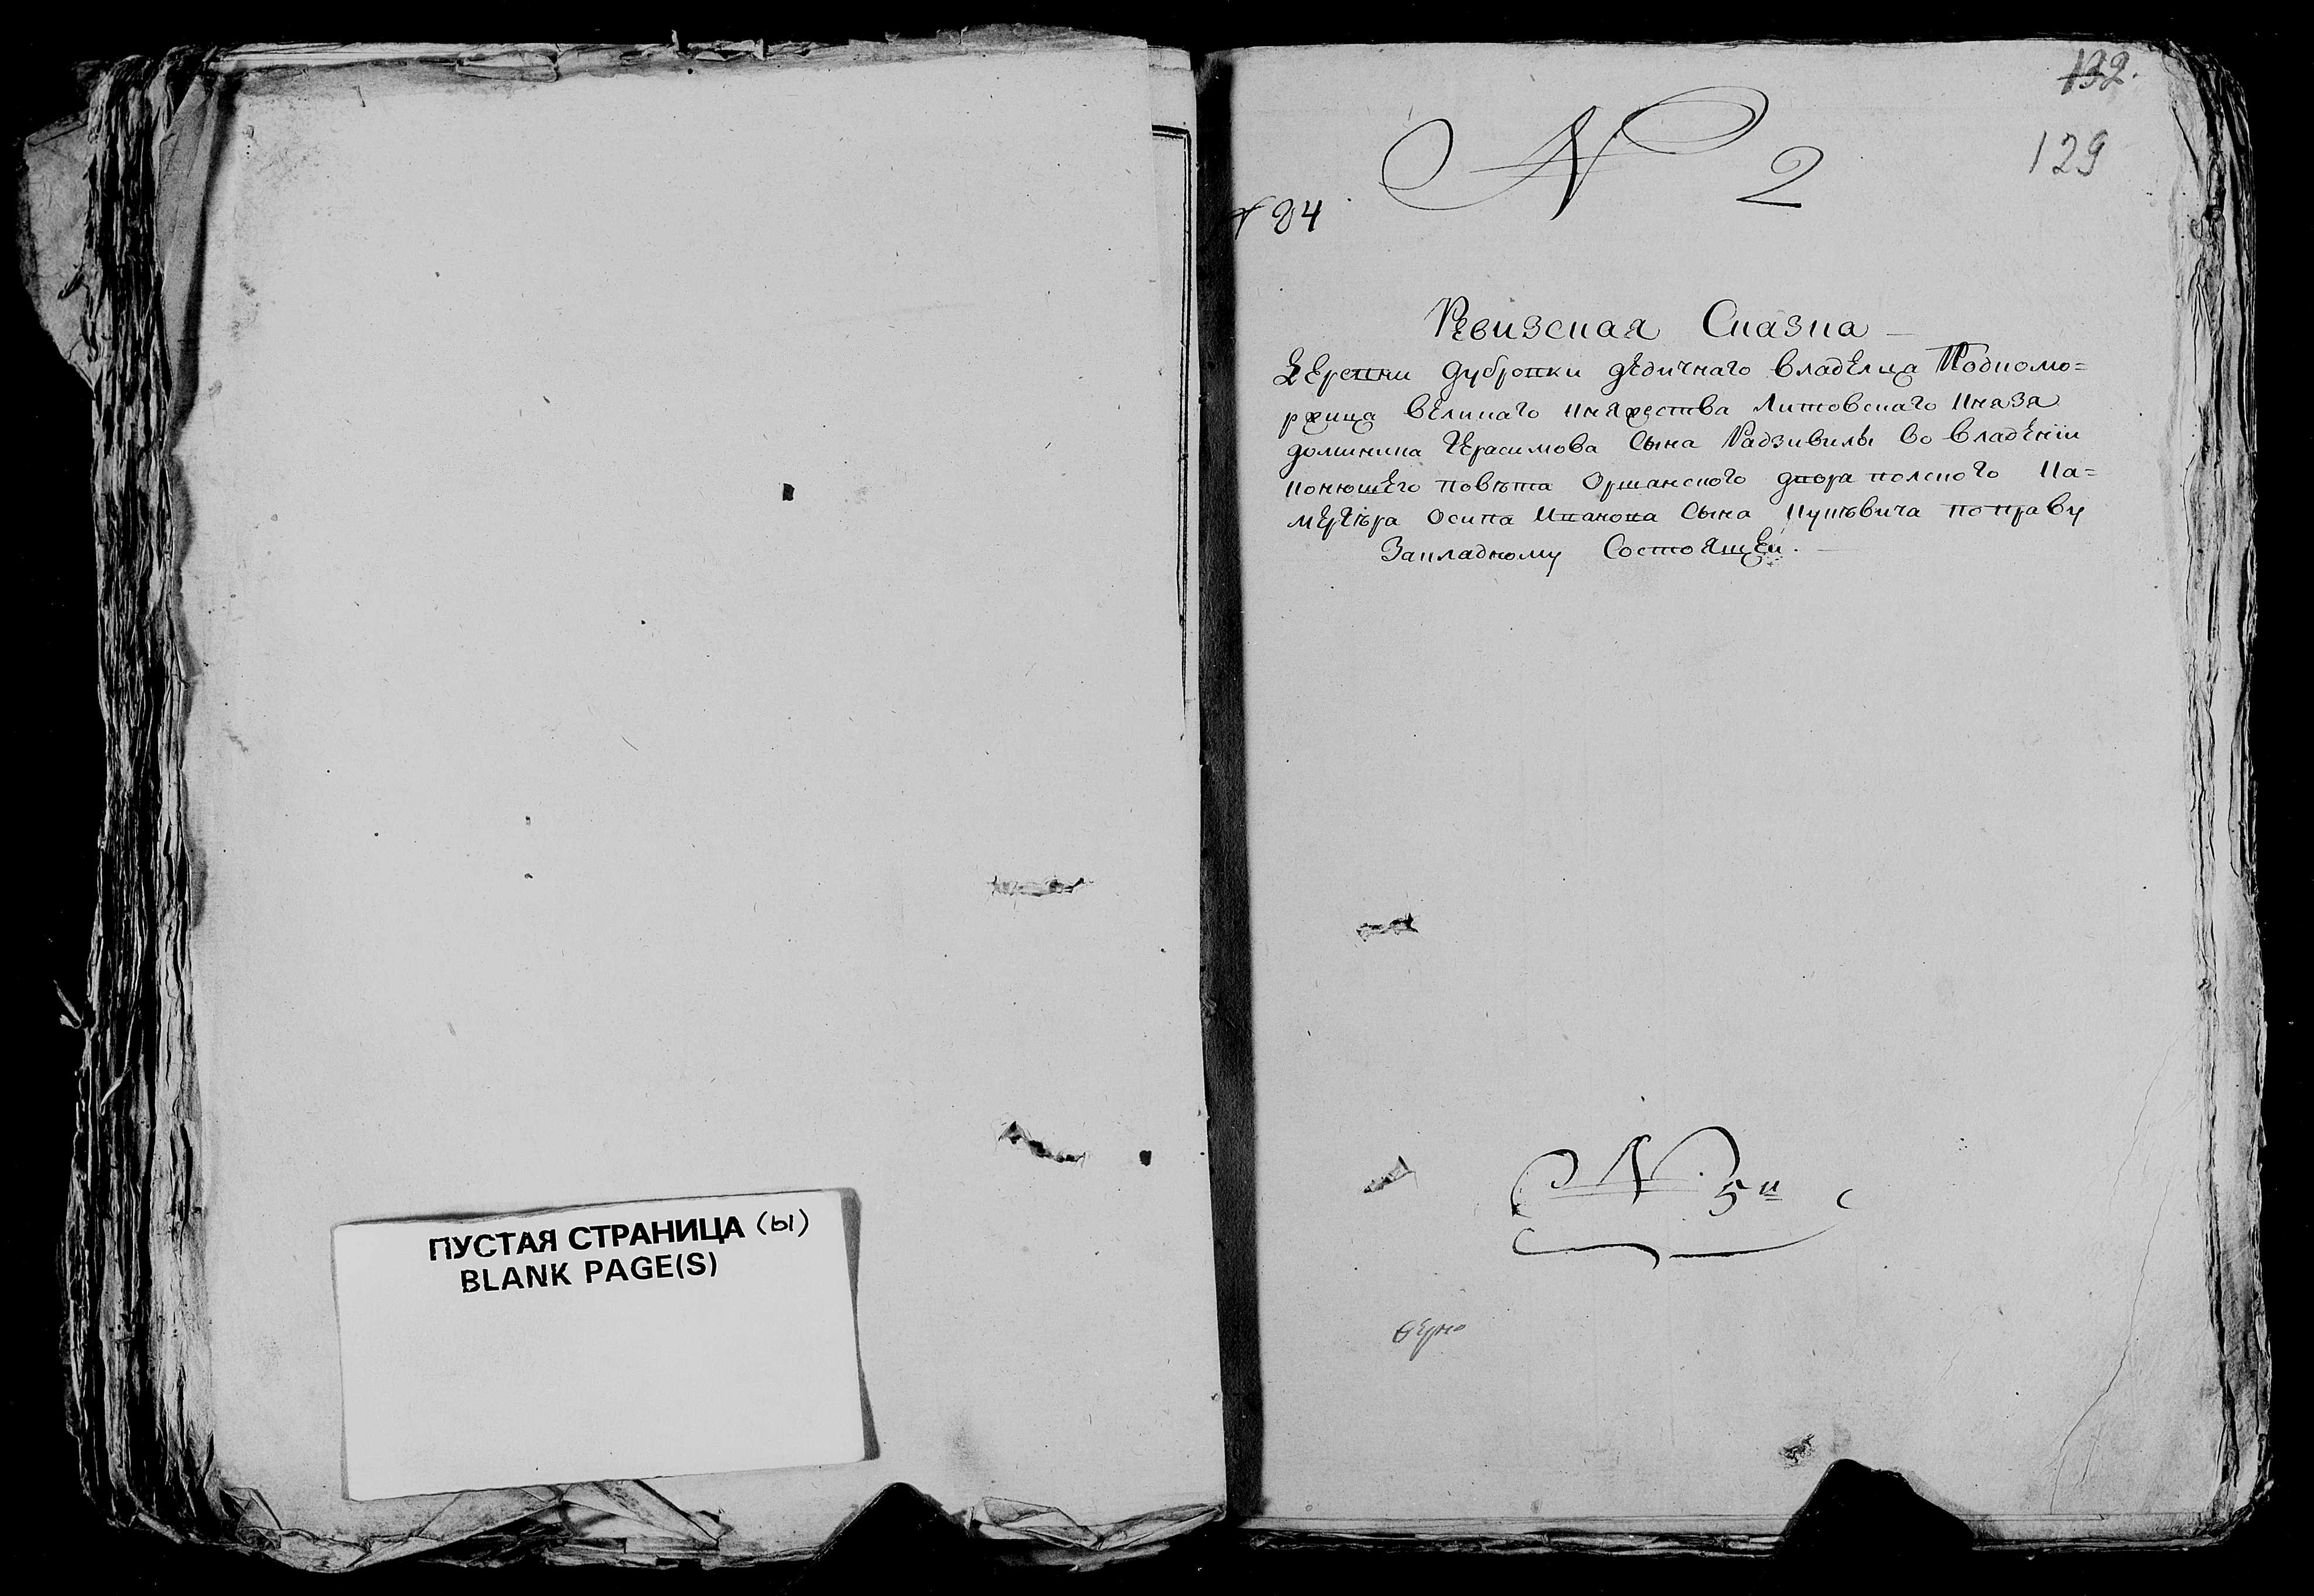 ПУСТАЯ СТРАНИЦА (Ы)
BLANK PAGE(S)
132.
129
N 2
84
Ревизская Сказка
Деревни Дубровки дедичнаго владелца Подкомо=
ржица великаго княжества Литовскаго Князя
Доминика Герасимова Сына Радзивила во владении
Конюшего повѣта Оршанского двора полского Ка=
мергѣра Осипа Иванова Сына Пупкѣвича по праву
Закладному Состоящей.
N. 5й
верно